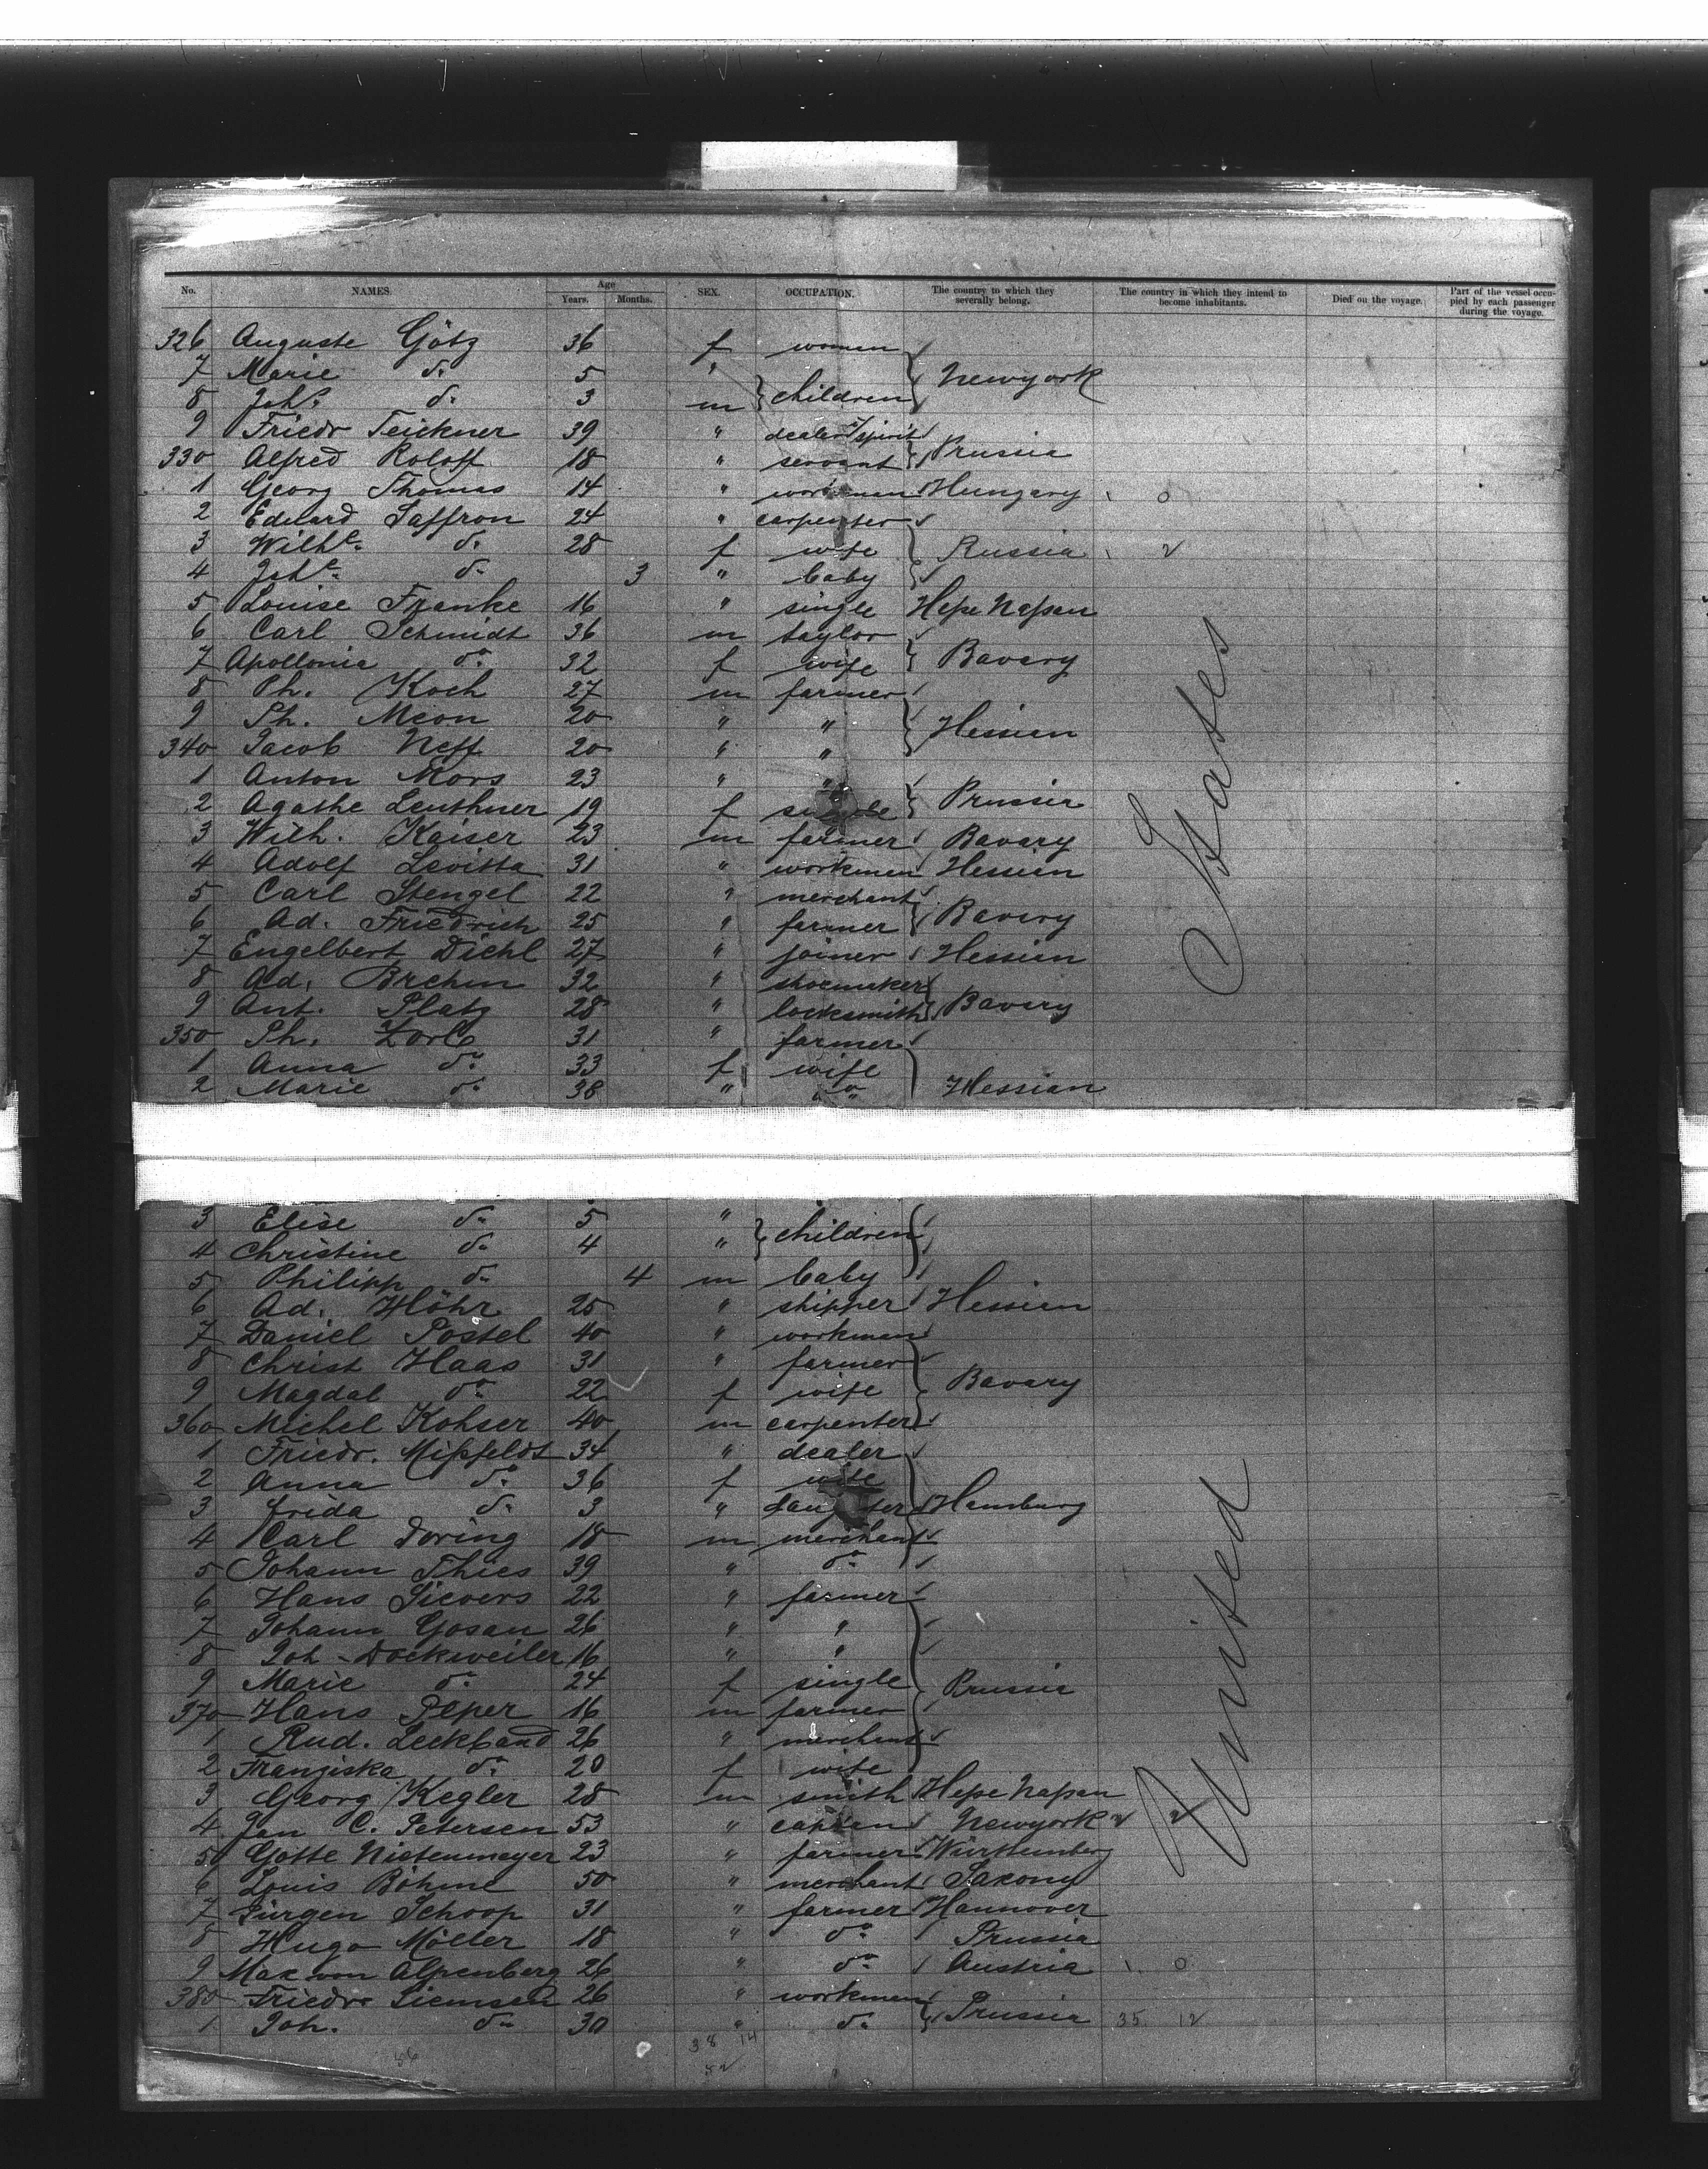 No. NAMES. Age Years. Months. SEX. OCCUPATION. The country to which they severally belong. The country in which they intend to become inhabitants. Died on the voyage. Part of the vessel occupied by each passenger during the voyage.
326 Auguste Götz 36 f women
7 Marie do 5 " children Newyork
8 Johs. do 3 m
9 Friedr Teickner 39 " dealer
330 Alfred Roloff 18 " servant Prussia
1 Georg Thomas 14 " workmen Hungary
2 Eduard Saffron 24 " carpenter
3 Wilhe. do 28 f wife Russia
4 Johe. do 3 " baby
5 Louise Franke 16 " single Heße Naßau
6 Carl Schmidt 36 m taylor
7 Apollonia do 32 f wife Bavary
8 Ph. Koch 27 m farmer
9 Ph. Meon 20 " " Hessien
340 Jacob Neff 20 " "
1 Anton Mors 23 " "
2 Agathe Leuthner 19 f single Prussia
3 Wilh. Kaiser 23 m farmer Bavary
4 Adolf Levitta 31 " workmen Hessien
5 Carl Stengel 22 " merchant
6 Ad. Friedrich 25 " farmer Bavary
7 Engelbert Diehl 27 " joiner Hessien
8 Ad. Brehm 32 " shoemaker
9 Ant. Platz 28 " locksmith Bavary
350 Ph. Zorb 31 " farmer
1 Anna do 33 f wife
2 Marie do 38 " " Hessian
3 Elise do 5 " children
4 Christine do 4 "
5 Philipp do 4 m baby
6 Ad. Höhr 25 " shipper Hessien
7 Daniel Postel 40 " workmen
8 Christ Haas 31 " farmer
9 Magdal do 22 f wife Bavary
360 Michel Kohser 40 m carpenter
1 Friedr. Mißfeldt 34 " dealer
2 Anna do 36 f wife
3 Frida do 3 " daughter Hamburg
4 Carl Doring 18 m merchant
5 Johann Thies 39 " do
6 Hans Sievers 22 " farmer
7 Johann Gosau 26 " "
8 Joh. Dockweiler 16 " "
9 Marie do 24 f single Prussia
370 Hans Peper 16 m farmer
1 Rud. Leckband 26 " merchant
2 Franziska do 20 f wife
3 Georg Kegler 28 m smith Heße Naßau
4 Jan C. Petersen 53 " captan Newyork
5 Gotte Nietenmeyer 23 " farmer Württemberg
6 Louis Böhme 50 " merchant Saxony
7 Jürgen Schoop 31 " farmer Hannover
8 Hugo Möller 18 " do Prussia
9 Max von Alpenberg 26 " do Austria 0
380 Friedr Siemsen 26 " workmen
1 Joh. do 30 " do Prussia 35 12
38 14
56
United States